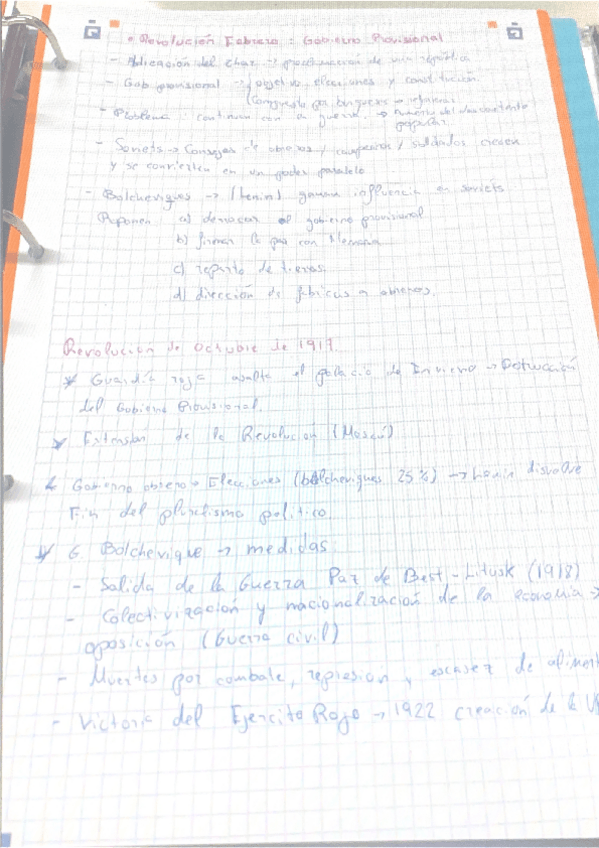 • Revolución Febrero: Gobierno Provisional
- Abdicación del Zhar → proclamación de una república
- Gob provisional → objetivo elecciones y constitución.
(Compuesto por burgueses → reformistas
- Problema: continuan con la guerra. → Aumento del descontento
popular.
- Soviets → Consejos de obreros / campesinos / soldados crecen
y se convierten en un poder paralelo
- Bolcheviques → (Lenin) ganan influencia en soviets
Proponen: a) derrocar el gobierno provisional
b) firmar la paz con Alemania
c) reparto de tierras.
d) dirección de fábricas a obreros.
Revolución de Octubre de 1917.
* Guardia roja asalta el palacio de Invierno → Destrucción
del Gobierno Provisional.
* Extensión de la Revolución (Moscú)
* Gobierno obrero → Elecciones (bolcheviques 25%) → Lenin disuelve
Fin del pluralismo político
* G. Bolchevique → medidas:
- Salida de la Guerra Paz de Best-Litusk (1918)
- Colectivización y nacionalización de la economía →
oposición (Guerra civil)
- Muertes por combate, represión y escasez de aliment
- Victoria del Ejercito Rojo → 1922 creación de la U